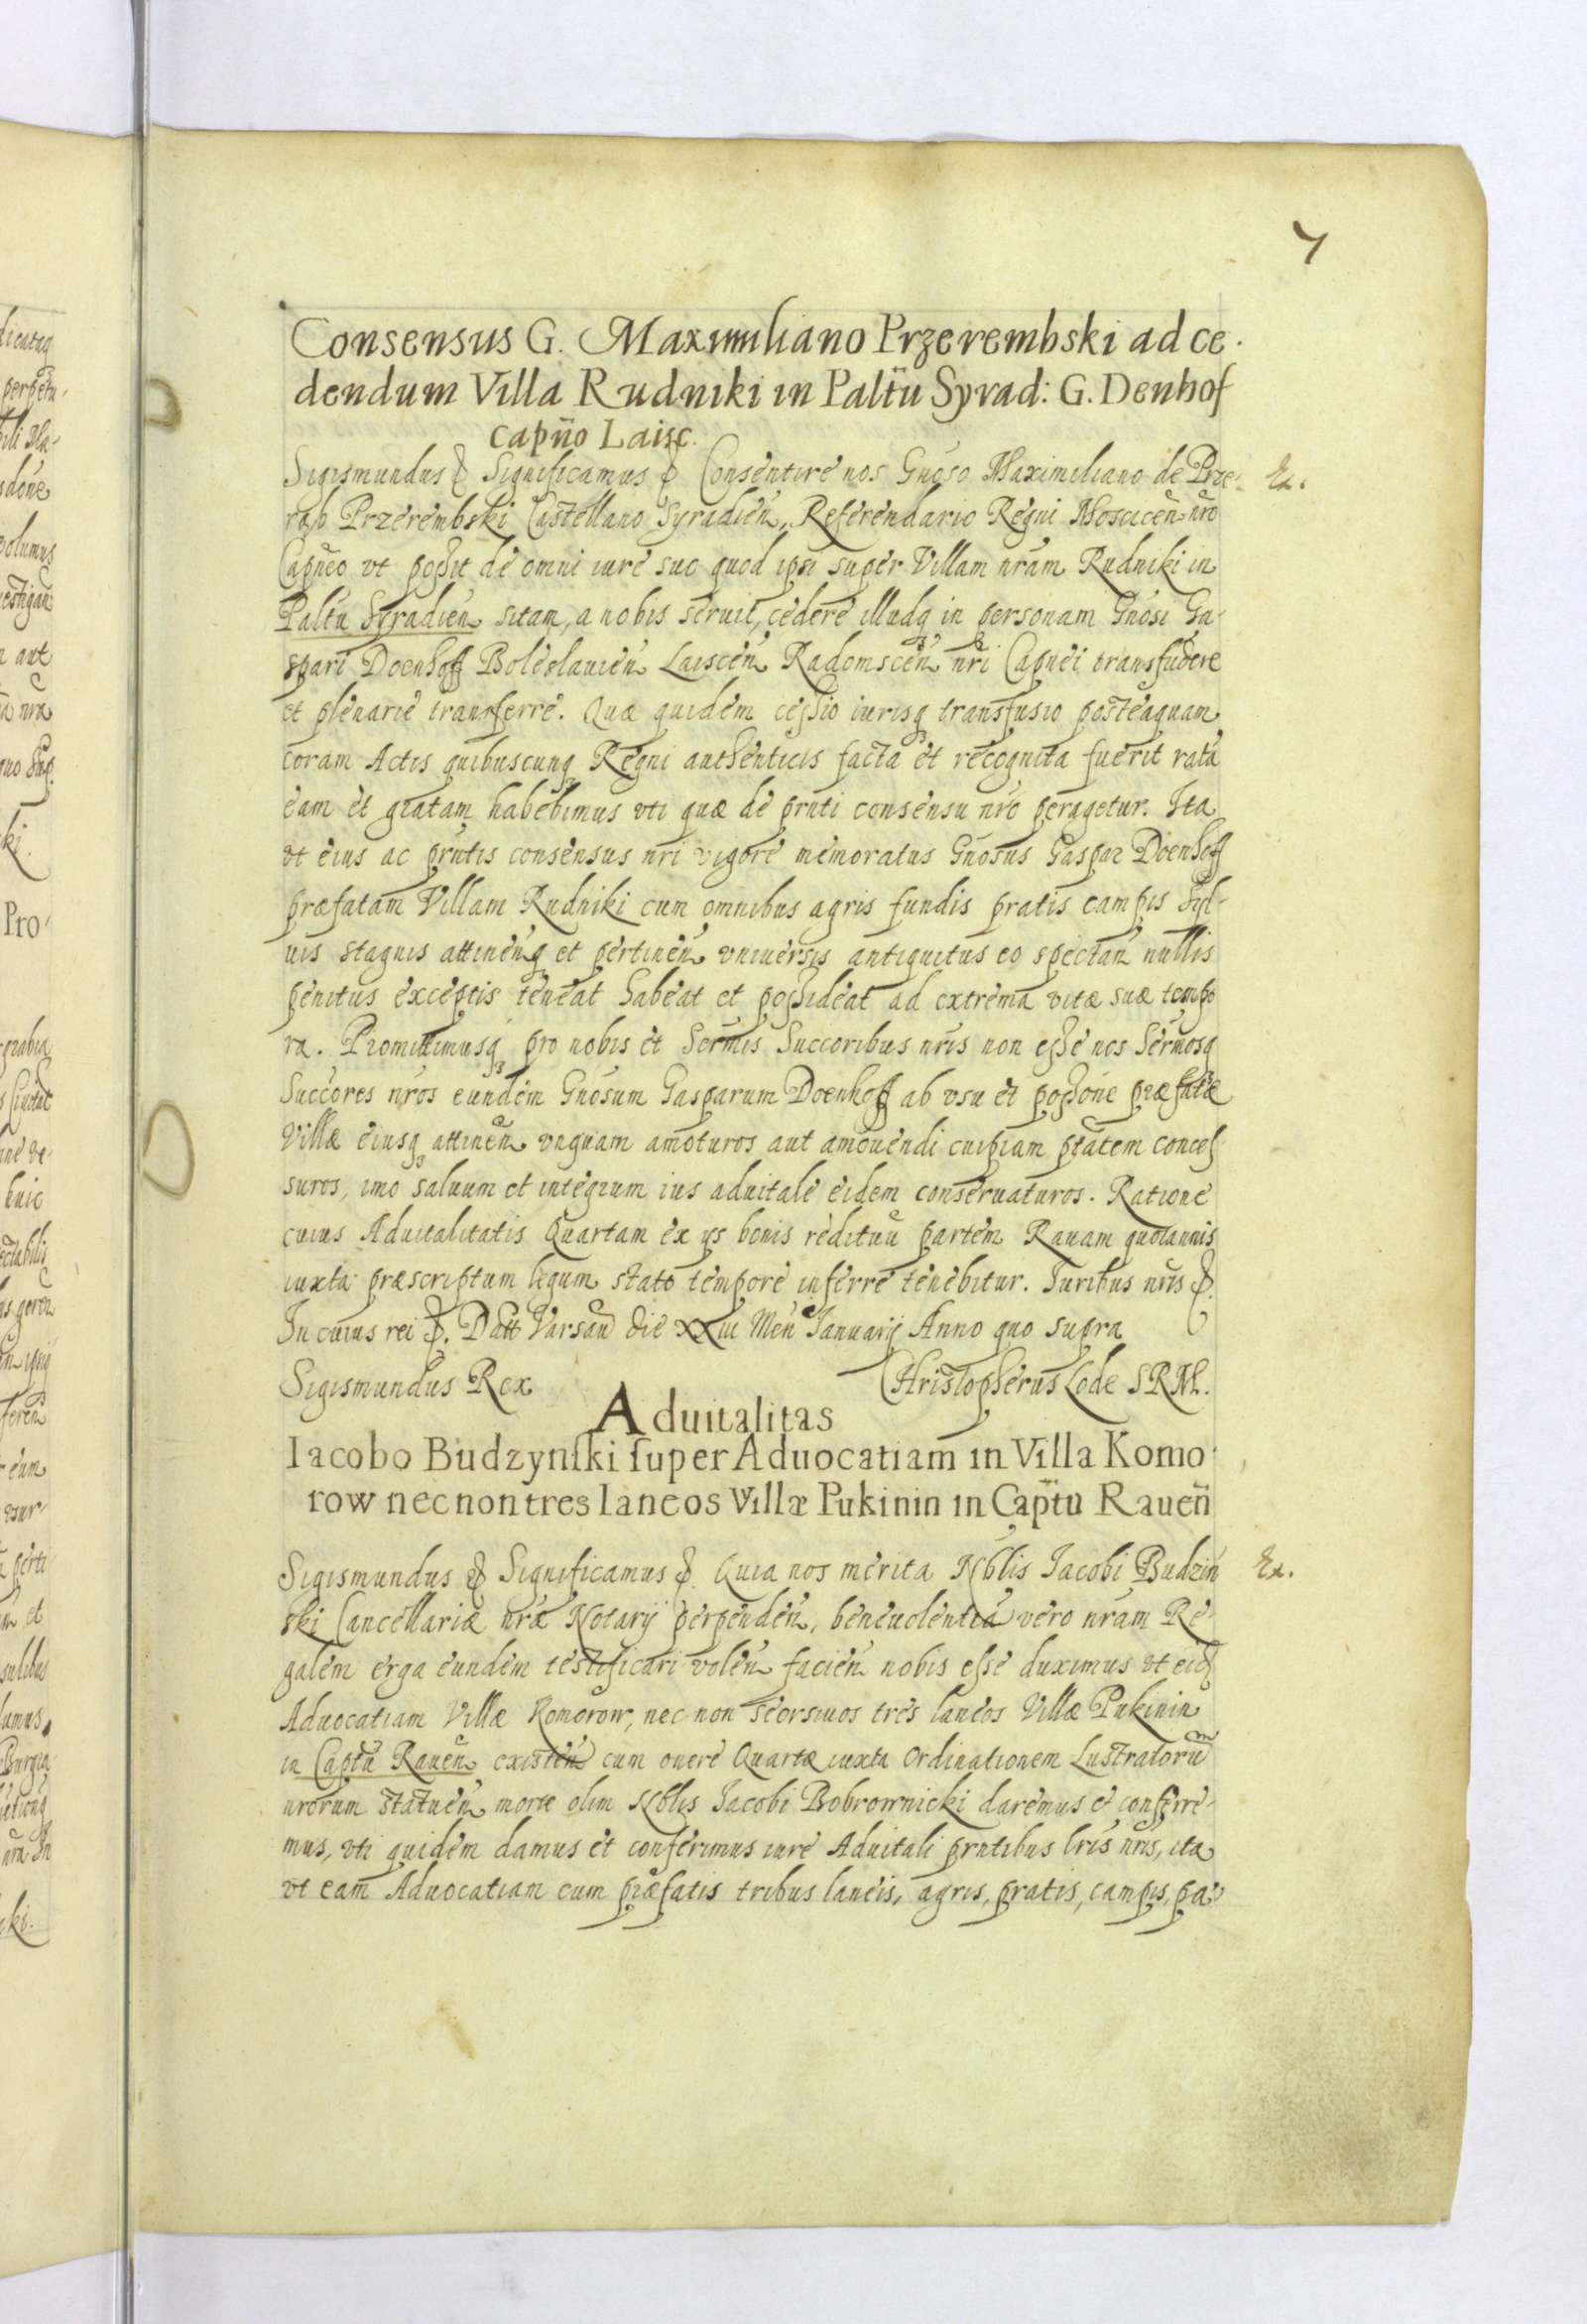 7
Consensus G. Maximiliano Przerembski ad ce-
dendum Villa Rudniki in Paltū Syrad: G. Denhof
capño Laisc.
Sigismundus & Significamus & Consentire nos Gnoso Maximiliano de Prze- Ex.
rąb Przerembski Castellano Syradień, Referendario Regni Moscicen nro
Capneo vt possit de omni iure suo quod ipsi super Villam nram Rudniki in
Paltu Syradien sitam, a nobis seruit, cedere illudq in personam Gnosi Ga-
spari Doenhoff Boleslauien Laiscen Radomscen nri Capnei transfudere
et plenarie transferre. Quæ quidem cessio iurisq transfusio posteaquam
coram Actis quibuscunq Regni authenticis facta et recognita fuerit rata
eam et gratam habebimus vti quæ de prnti consensu nro peragetur. Ita
vt eius ac prntis consensus nri vigore memoratus Gnosus Gaspar Doenhoff
præfatam Villam Rudniki cum omnibus agris fundis pratis campis Syl-
uis stagnis attinenq et pertinen vniuersis antiquitus eo spectan nullis
penitus exceptis teneat habeat et possideat ad extrema vitæ suæ tempo
ra. Promittimusq pro nobis et Sermis Succoribus nris non esse nos Sermosq
Succores nros eundem Gnosum Gasparum Doenhoff ab vsu et possone præfatæ
Villæ eiusq attinen vnquam amoturos aut amouendi cuipiam ptatem concess-
suros, imo saluum et integrum ius aduitale eidem conseruaturos. Ratione
cuius Aduitalitatis Quartam ex ijs bonis redituu partem Rauam quotannis
iuxta præscriptum legum stato tempore inferre tenebitur. Iuribus nris &.
In cuius rei &. Datt Varsau die XXiii Men Ianuarij Anno quo supra
Sigismundus Rex Christopherus Lode SRM.
Aduitalitas
Iacobo Budzynſki ſuper Aduocatiam in Villa Komo-
row nec non tres laneos Villæ Pukinin in Captu Raueñ
Sigismundus & Significamus &. Quia nos merita Nblis Iacobi Budzin Ex.
ski Cancellariæ nræ Notarij perpenden, beneuolentiã vero nram Re-
galem erga eundem testificari volen facien nobis esse duximus vt eid
Aduocatiam Villæ Komorow, nec non seorsiuos tres laneos Villæ Pukinin
in Captu Rauen existen cum onere Quartæ iuxta Ordinationem Lustratorum
nrorum statuen morte olim Nblis Iacobi Bobrownicki daremus et conferre-
mus, vti quidem damus et conferimus iure Aduitali prntibus lris nris, ita
vt eam Aduocatiam cum præfatis tribus laneis, agris, pratis, campis, pa-